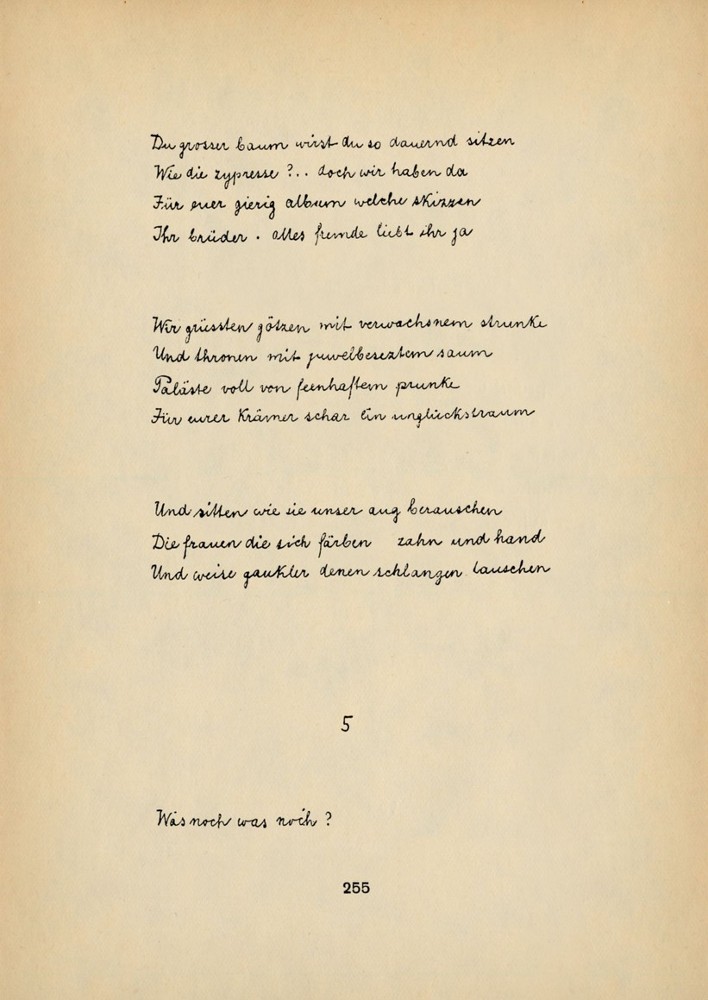 Du grosser baum wirst du so dauernd sitzen
Wie die zypresse ?.. doch wir haben da
Für euer gierig album welche skizzen
Ihr brüder . alles fremde liebt ihr ja
Wir grüssten götzen mit verwachsnem strunke
Und thronen mit juwelbeseztem saum
Paläste voll von feenhaftem prunke
Für eurer Krämer schar ein unglückstraum
Und sitten wie sie unser aug berauschen
Die frauen die sich färben zahn und hand
Und weise gaukler denen schlangen lauschen
5
Was noch was noch ?
255